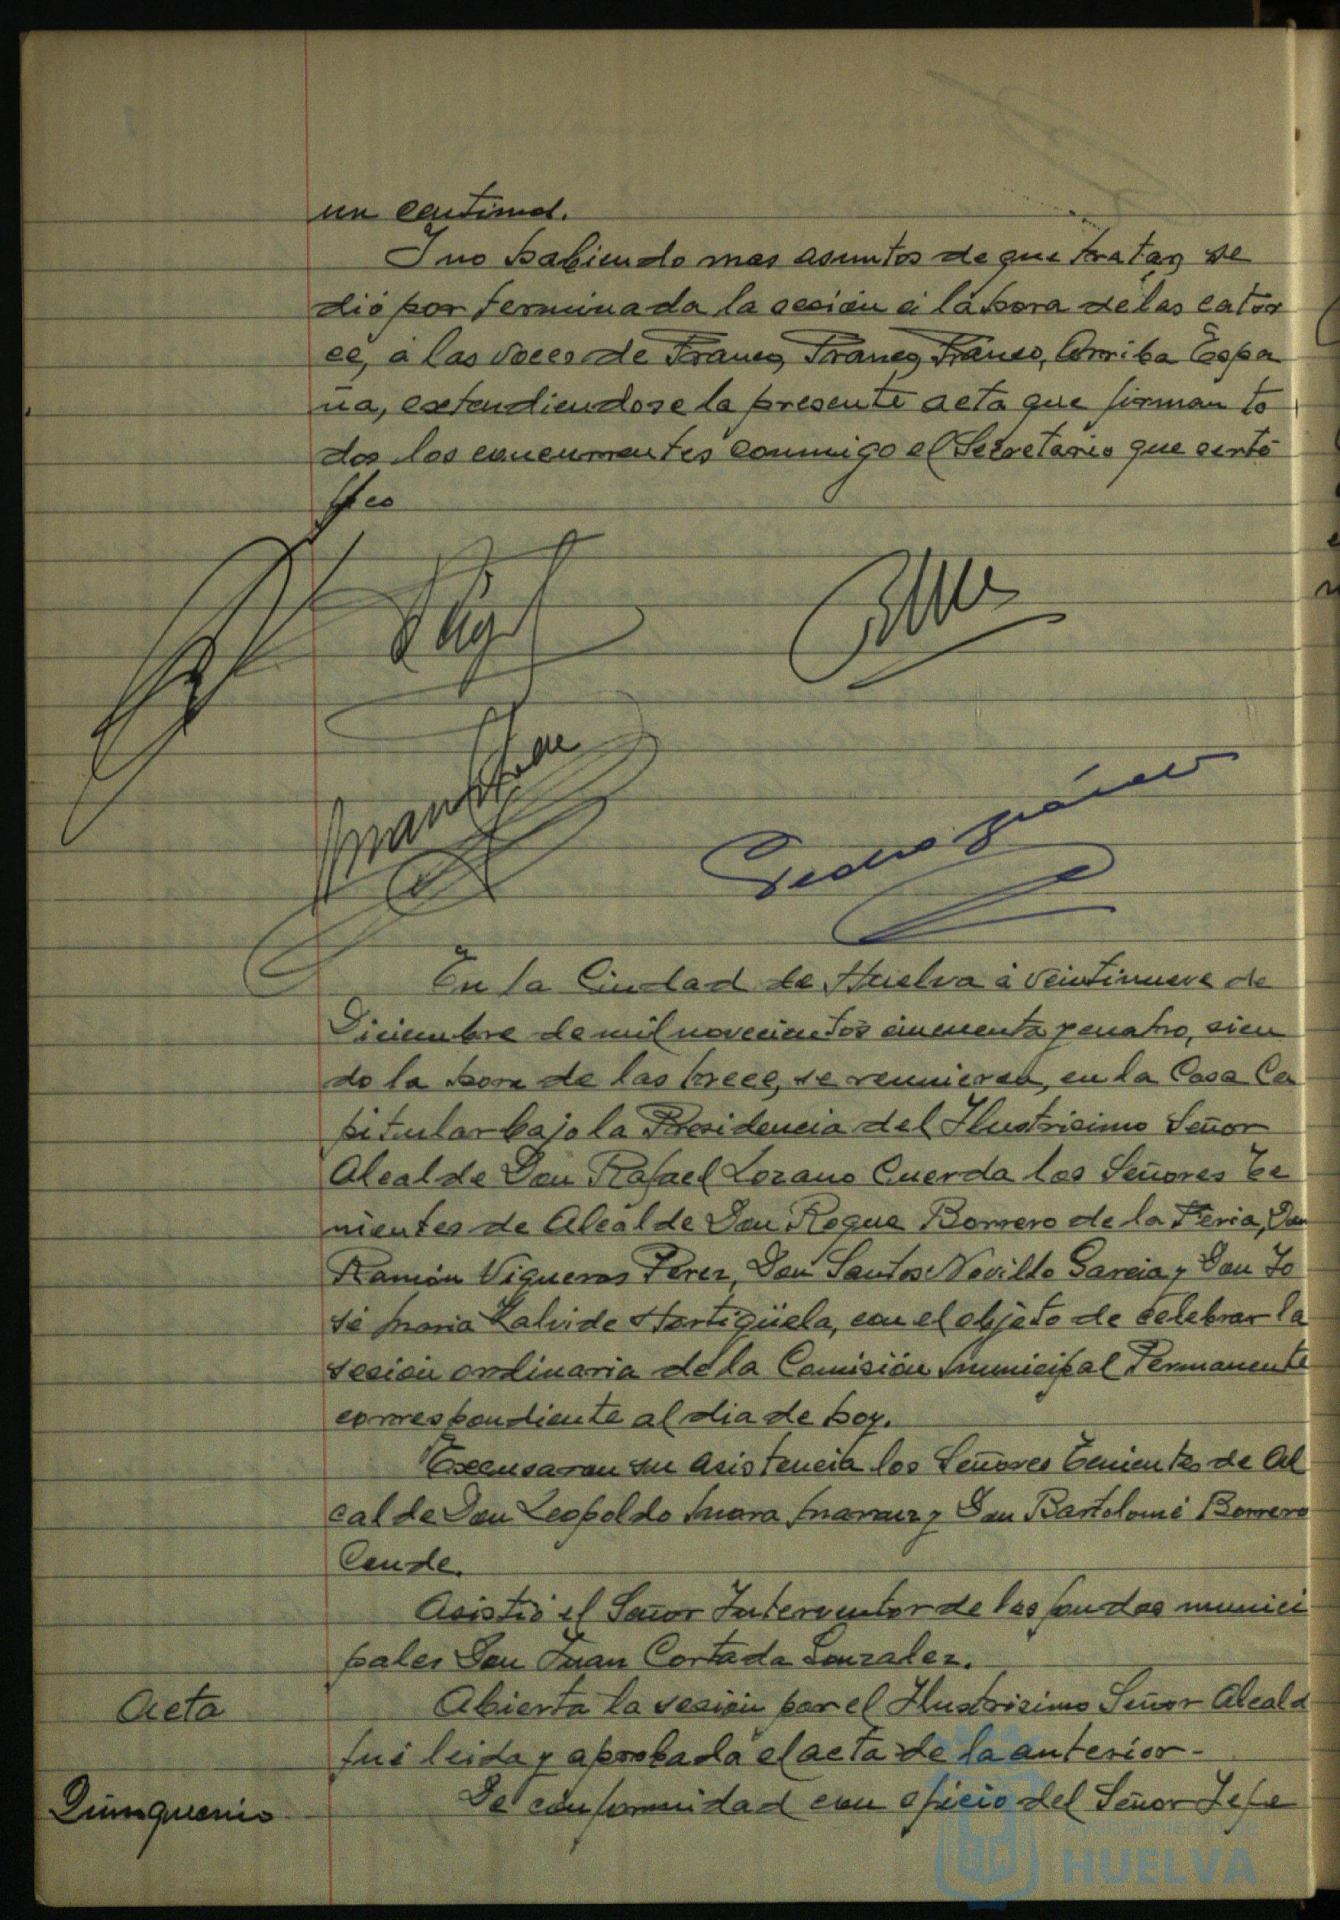 un centimo.
Y no habiendo mas asuntos de que tratar, se
dió por terminada la sesión á la hora de las cator
ce, a las voces de Franco, Franco, Franco, Arriba Espa
ña, extendiendose la presente acta que firman to
dos los concurrentes conmigo el Secretario que certi
fico
En la Ciudad de Huelva á veintinueve de
Diciembre de mil novecientos cincuenta y cuatro, sien
do la hora de las trece, se reunieron, en la Casa Ca
pitular bajo la Presidencia del Ilustrisimo Señor
Alcalde Don Rafael Lozano Cuerda los Señores Te
nientes de Alcalde Don Roque Borrero de la Feria, Don
Ramón Vigueras Perez, Don Santos Novillo Garcia y Don Jo
sé Maria Zalvide Hortigüela, con el objeto de celebrar la
sesión ordinaria de la Comisión Municipal Permanente
correspondiente al dia de hoy.
Excusaron su asistencia los Señores Tenientes de Al
calde Don Leopoldo Mora y Don Bartolomé Borrero
Conde.
Asistió el Señor Interventor de los fondos munici
pales Don Juan Cortada Gonzalez.
Acta Abierta la sesión por el Ilustrisimo Señor Alcald
fué leida y aprobada el acta de la anterior-
Quinquenio De conformidad con oficio del Señor Jefe
Ayuntamiento de
HUELVA